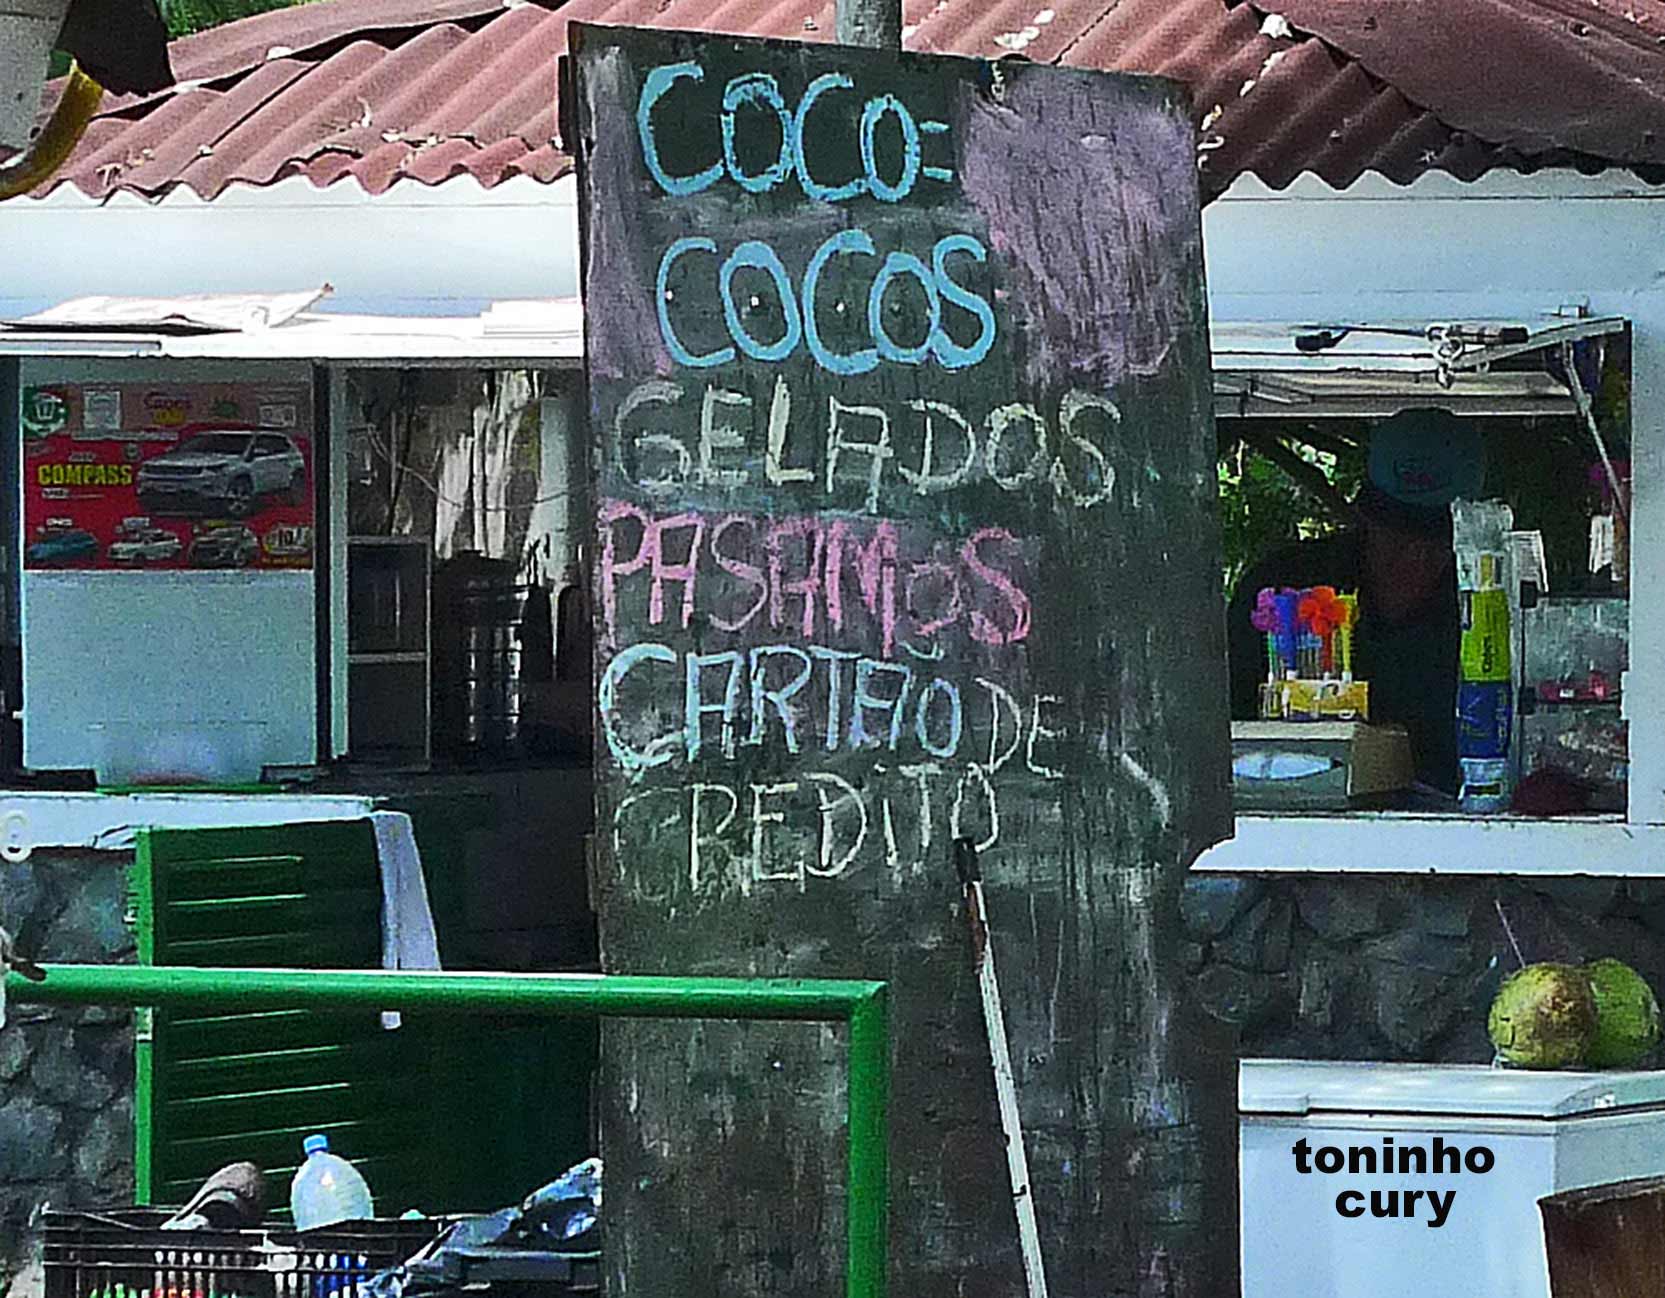 COCO=
COCOS
GELADOS
PASAMOS
CARTÃO DE
CREDITO
COMPASS
toninho
cury